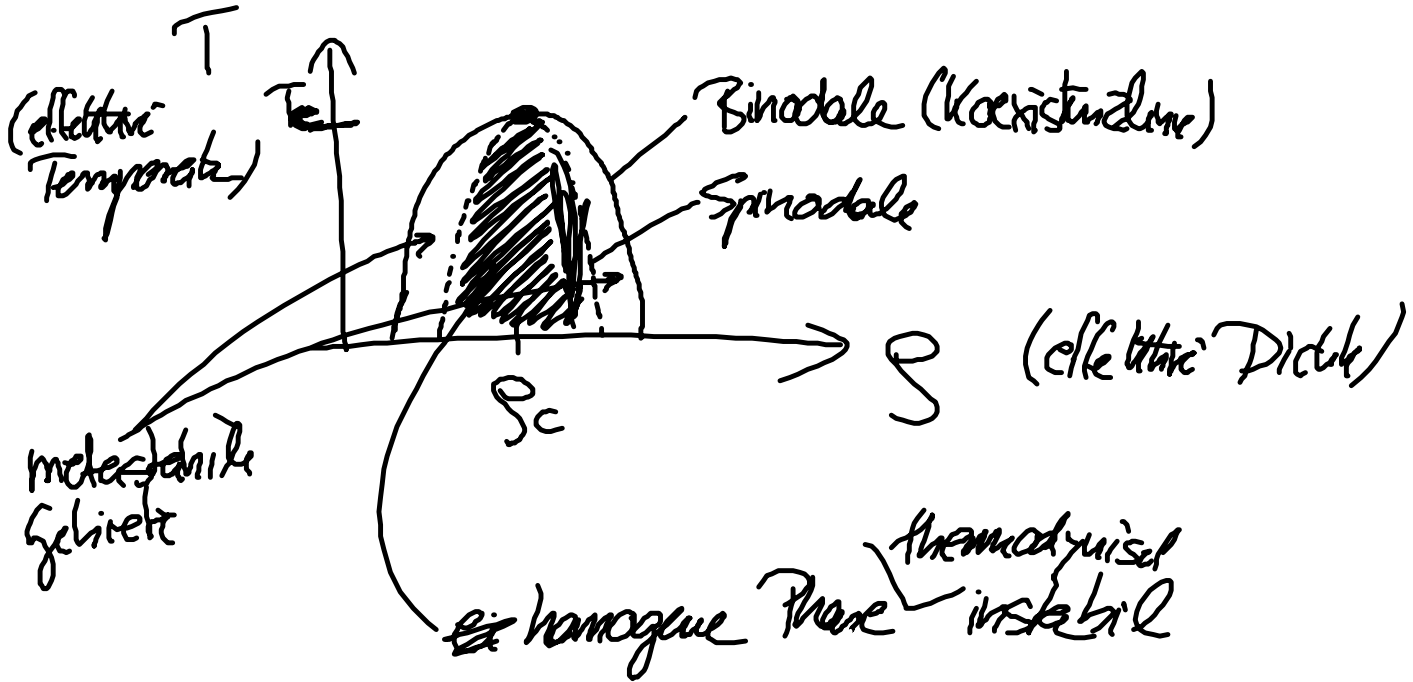 T
(effektive
Temperatur)
Tc
Binodale (Koexistenzlinie)
Spinodale
ρ (effektive Dichte)
ρc
metastabile
Gebiete
homogene Phase thermodynamisch
instabil